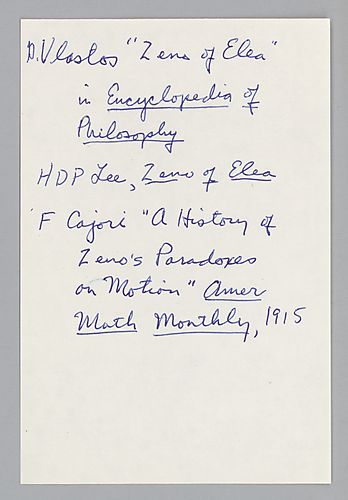 G. Vlastos "Zeno of Elea"
in Encyclopedia of
Philosophy
HDP Lee, Zeno of Elea
F Cajori "A History of
Zeno's Paradoxes
on Motion" Amer
Math Monthly, 1915